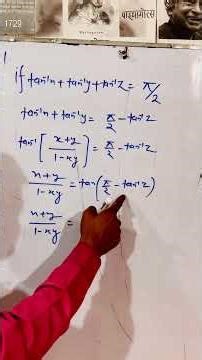 1729
पाइथागोरस
if tan⁻¹x + tan⁻¹y + tan⁻¹z = π/2
tan⁻¹x + tan⁻¹y = π/2 - tan⁻¹z
tan⁻¹ [(x+y)/(1-xy)] = π/2 - tan⁻¹z
(x+y)/(1-xy) = tan(π/2 - tan⁻¹z)
(x+y)/(1-xy) =